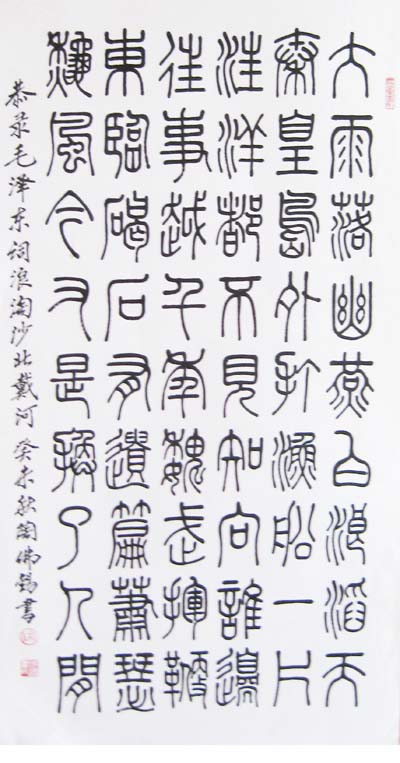 大雨落幽燕白浪滔天
秦皇島外打漁船一片
汪洋都不見知向誰邊
往事越千年魏武揮鞭
東臨碣石有遺篇蕭瑟
龝風今又是換了人間
恭录毛泽东词浪淘沙北戴河癸未秋陶佛錫書